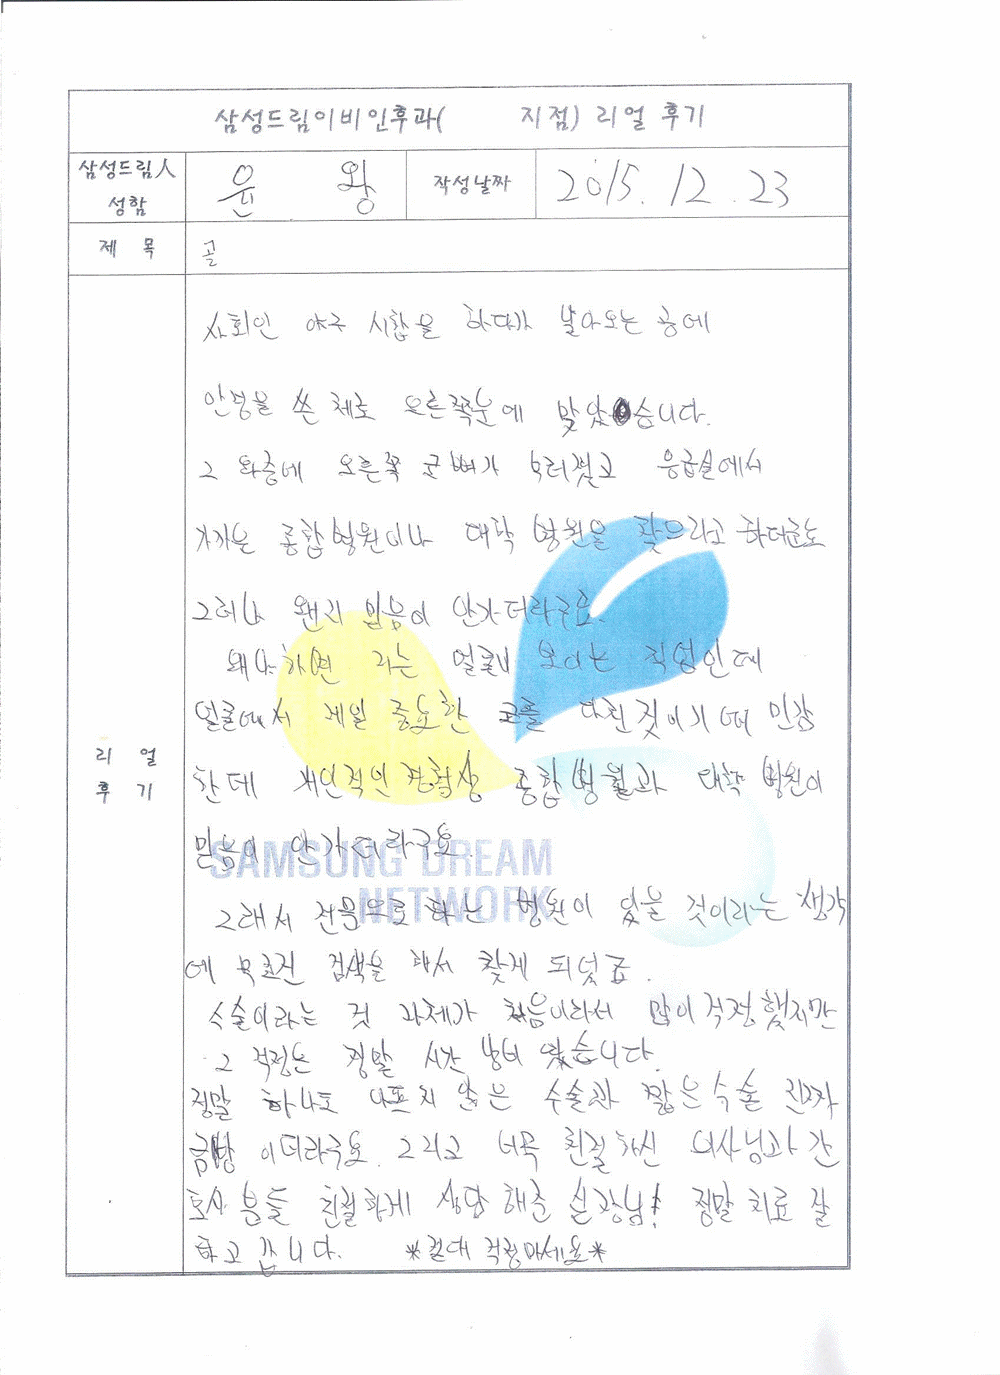 삼성드림이비인후과(      지점) 리얼 후기
삼성드림人 성함
윤 왕
작성날짜
2015. 12. 23
제 목
골
리 얼 후 기
사회인 야구 시합을 하다가 날아오는 공에
안경을 쓴 체로 오른쪽눈에 맞았습니다.
그 와중에 오른쪽 코뼈가 부러졌고 응급실에서
가까운 종합병원이나 대학 병원을 찾으라고 하더군요
그러나 왠지 믿음이 안가더라구요.
왜냐하면 저는 얼굴이 보이는 직업인데
얼굴에서 제일 중요한 코를 다친것이기에 민감
한데 개인적인 경험상 종합병원과 대학 병원이
믿음이 안가더라구요.
SAMSUNG DREAM
NETWORK
그래서 전문으로 하는 병원이 있을 것이라는 생각
에 무조건 검색을 해서 찾게 되었죠.
수술이라는 것 자체가 처음이라서 많이 걱정했지만
그 걱정은 정말 시간 낭비 였습니다.
정말 하나도 아프지 않은 수술과 짧은수술 진짜
금방 이더라구요. 그리고 너무 친절하신 의사님과 간
호사 분들 친절하게 상담 해준 실장님! 정말 치료 잘
하고 갑니다. *절대 걱정마세요*